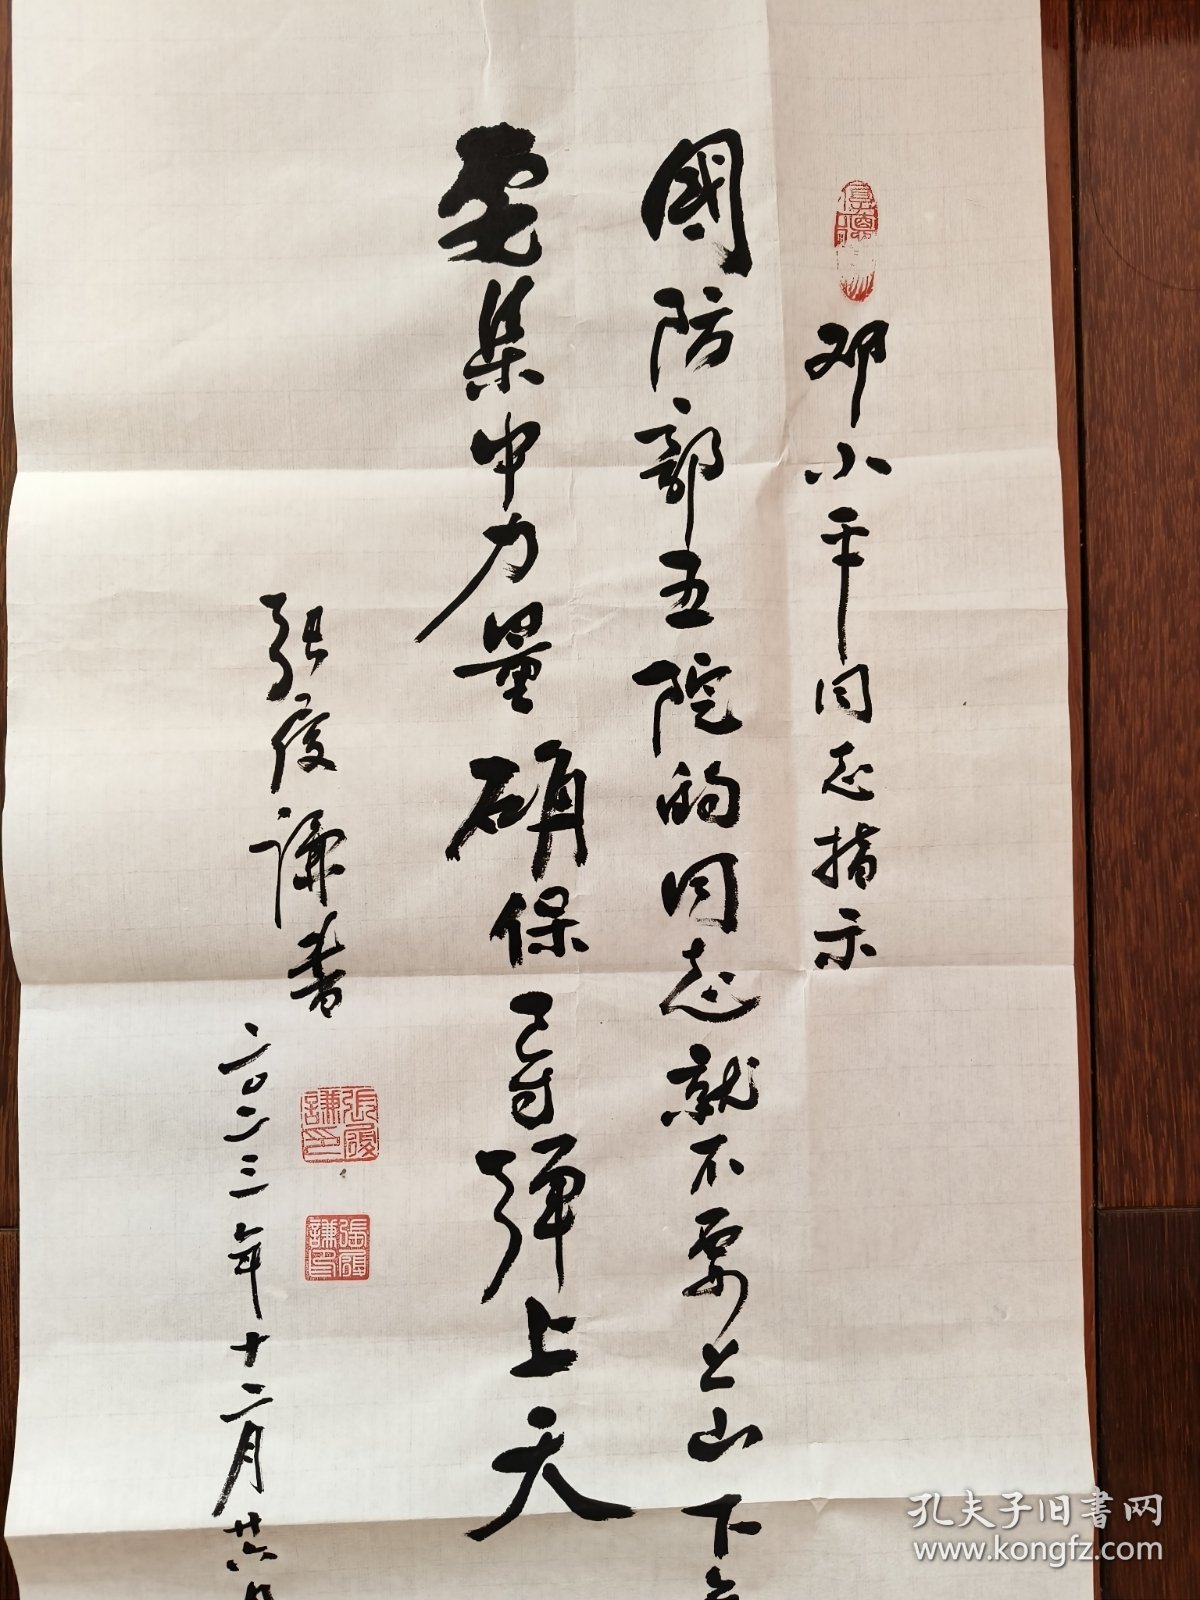 邓小平同志指示
國防部五院的同志就不要上山下
要集中力量确保导弹上天
张履谦書
二〇二三年十二月廿六日
張履謙印
張履謙印
孔夫子旧書网
www.kongfz.com